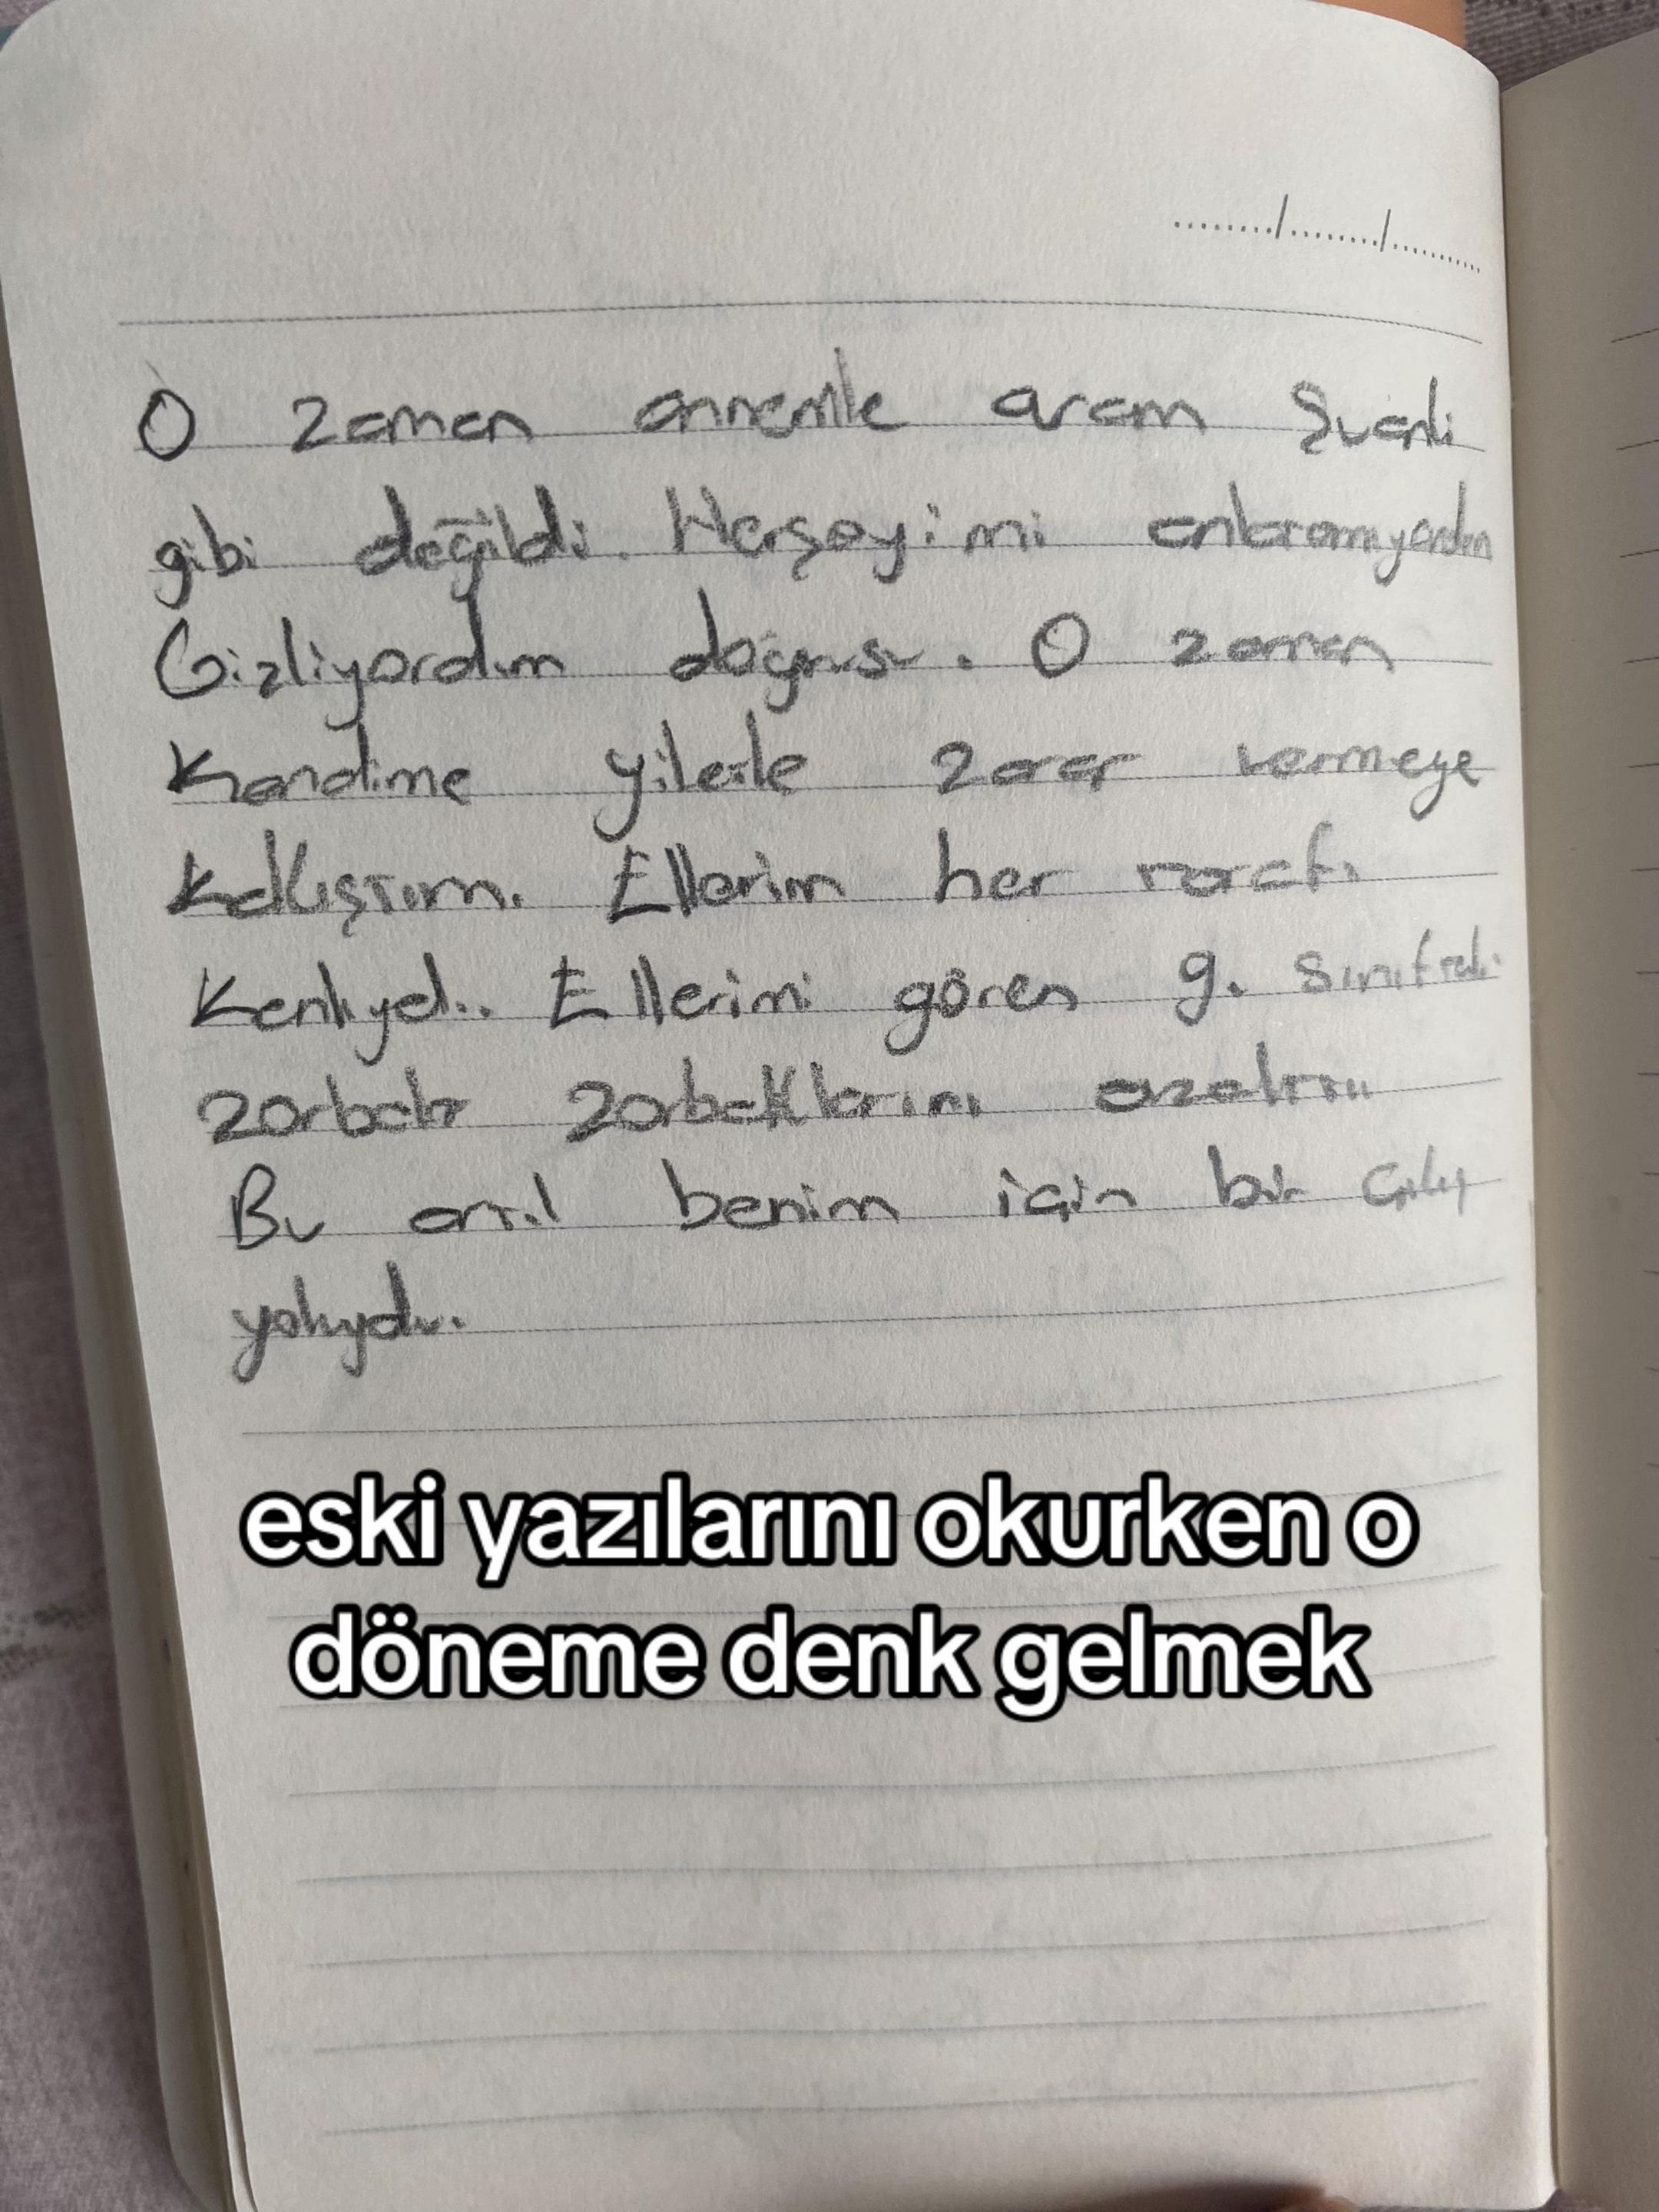 O zaman annemle aram şuanki
gibi değildi. Herşeyimi anlatamıyordum
Gizliyordum doğrusu. O zaman
Kendime yilerle zarar vermeye
Kalkıştım. Ellerim her tarafı
Kanlıydı. Ellerimi gören 9. Sınıftaki
zorbalar zorbalıklarını azalttı
Bu benim için bir Çıkış
yoluydu.
eski yazılarını okurken o
döneme denk gelmek